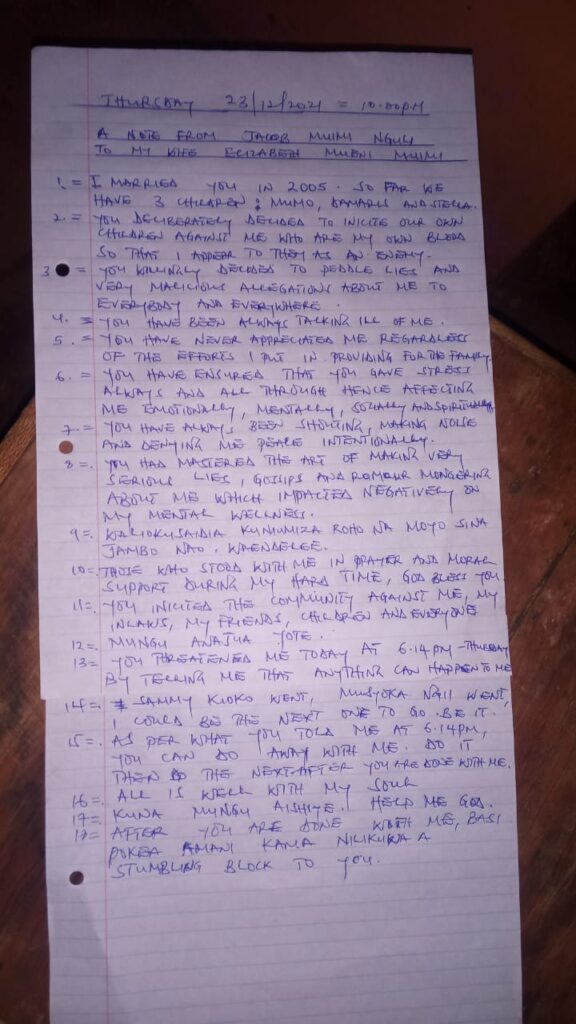 THURSDAY 23/12/2021 = 10.00PM
A NOTE FROM JACOB MUIMI NGULI
TO MY WIFE ELIZABETH MUENI MUIMI
1. = I MARRIED YOU IN 2005. SO FAR WE
HAVE 3 CHILDREN: MUMO, DAMARIS AND STELLA.
2. = YOU DELIBERATELY DECIDED TO INICITE OUR OWN
CHILDREN AGAINST ME WHO ARE MY OWN BLOOD
SO THAT I APPEAR TO THEY AS AN ENEMY.
3 = YOU WILLINGLY DECIDED TO PEDDLE LIES AND
VERY MALICIOUS ALLEGATIONS ABOUT ME TO
EVERYBODY AND EVERYWHERE.
4. = YOU HAVE BEEN ALWAYS TALKING ILL OF ME.
5. = YOU HAVE NEVER APPRECIATED ME REGARDLESS
OF THE EFFORTS I PUT IN PROVIDING FOR THE FAMILY.
6. = YOU HAVE ENSURED THAT YOU GAVE STRESS
ALWAYS AND ALL THROUGH HENCE AFFECTING
ME EMOTIONALLY, MENTALLY, SOCIALLY AND SPIRITUALLY
7. = YOU HAVE ALWAYS BEEN SHOUTING, MAKING NOISE
AND DENYING ME PEACE INTENTIONALLY.
8 =. YOU HAD MASTERED THE ART OF MAKING VERY
SERIOUS LIES, GOSSIPS AND RUMOUR MONGERING
ABOUT ME WHICH IMPACTED NEGATIVELY ON
MY MENTAL WELLNESS.
9 =. WALIOKUSAIDIA KUNIUMIZA ROHO NA MOYO SINA
JAMBO NAO. WAENDELEE.
10 =. THOSE WHO STOOD WITH ME IN PRAYER AND MORAL
SUPPORT DURING MY HARD TIME, GOD BLESS YOU.
11 =. YOU INICITED THE COMMUNITY AGAINST ME, MY
INLAWS, MY FRIENDS, CHILDREN AND EVERYONE
12 =. MUNGU ANAJUA YOTE.
13 =. YOU THREATENED ME TODAY AT 6.14PM - THURSDAY
BY TELLING ME THAT ANYTHING CAN HAPPEN TO ME
14 =. SAMMY KIOKO WENT, MUSYOKA NGII WENT,
I COULD BE THE NEXT ONE TO GO. BE IT.
15 =. AS PER WHAT YOU TOLD ME AT 6.14PM,
YOU CAN DO AWAY WITH ME. DO IT
THEN DO THE NEXT AFTER YOU ARE DONE WITH ME.
16 =. ALL IS WELL WITH MY SOUL
17 =. KUNA MUNGU AISHIYE. HELP ME GOD.
18 =. AFTER YOU ARE DONE WITH ME, BASI
POKEA AMANI KAMA NILIKUWA A
STUMBLING BLOCK TO YOU.